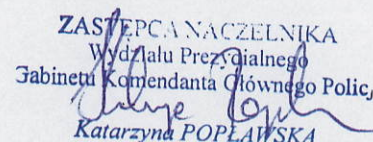 ZASTĘPCA NACZELNIKA
Wydziału Prezydialnego
Gabinetu Komendanta Głównego Policj
Katarzyna POPŁAWSKA